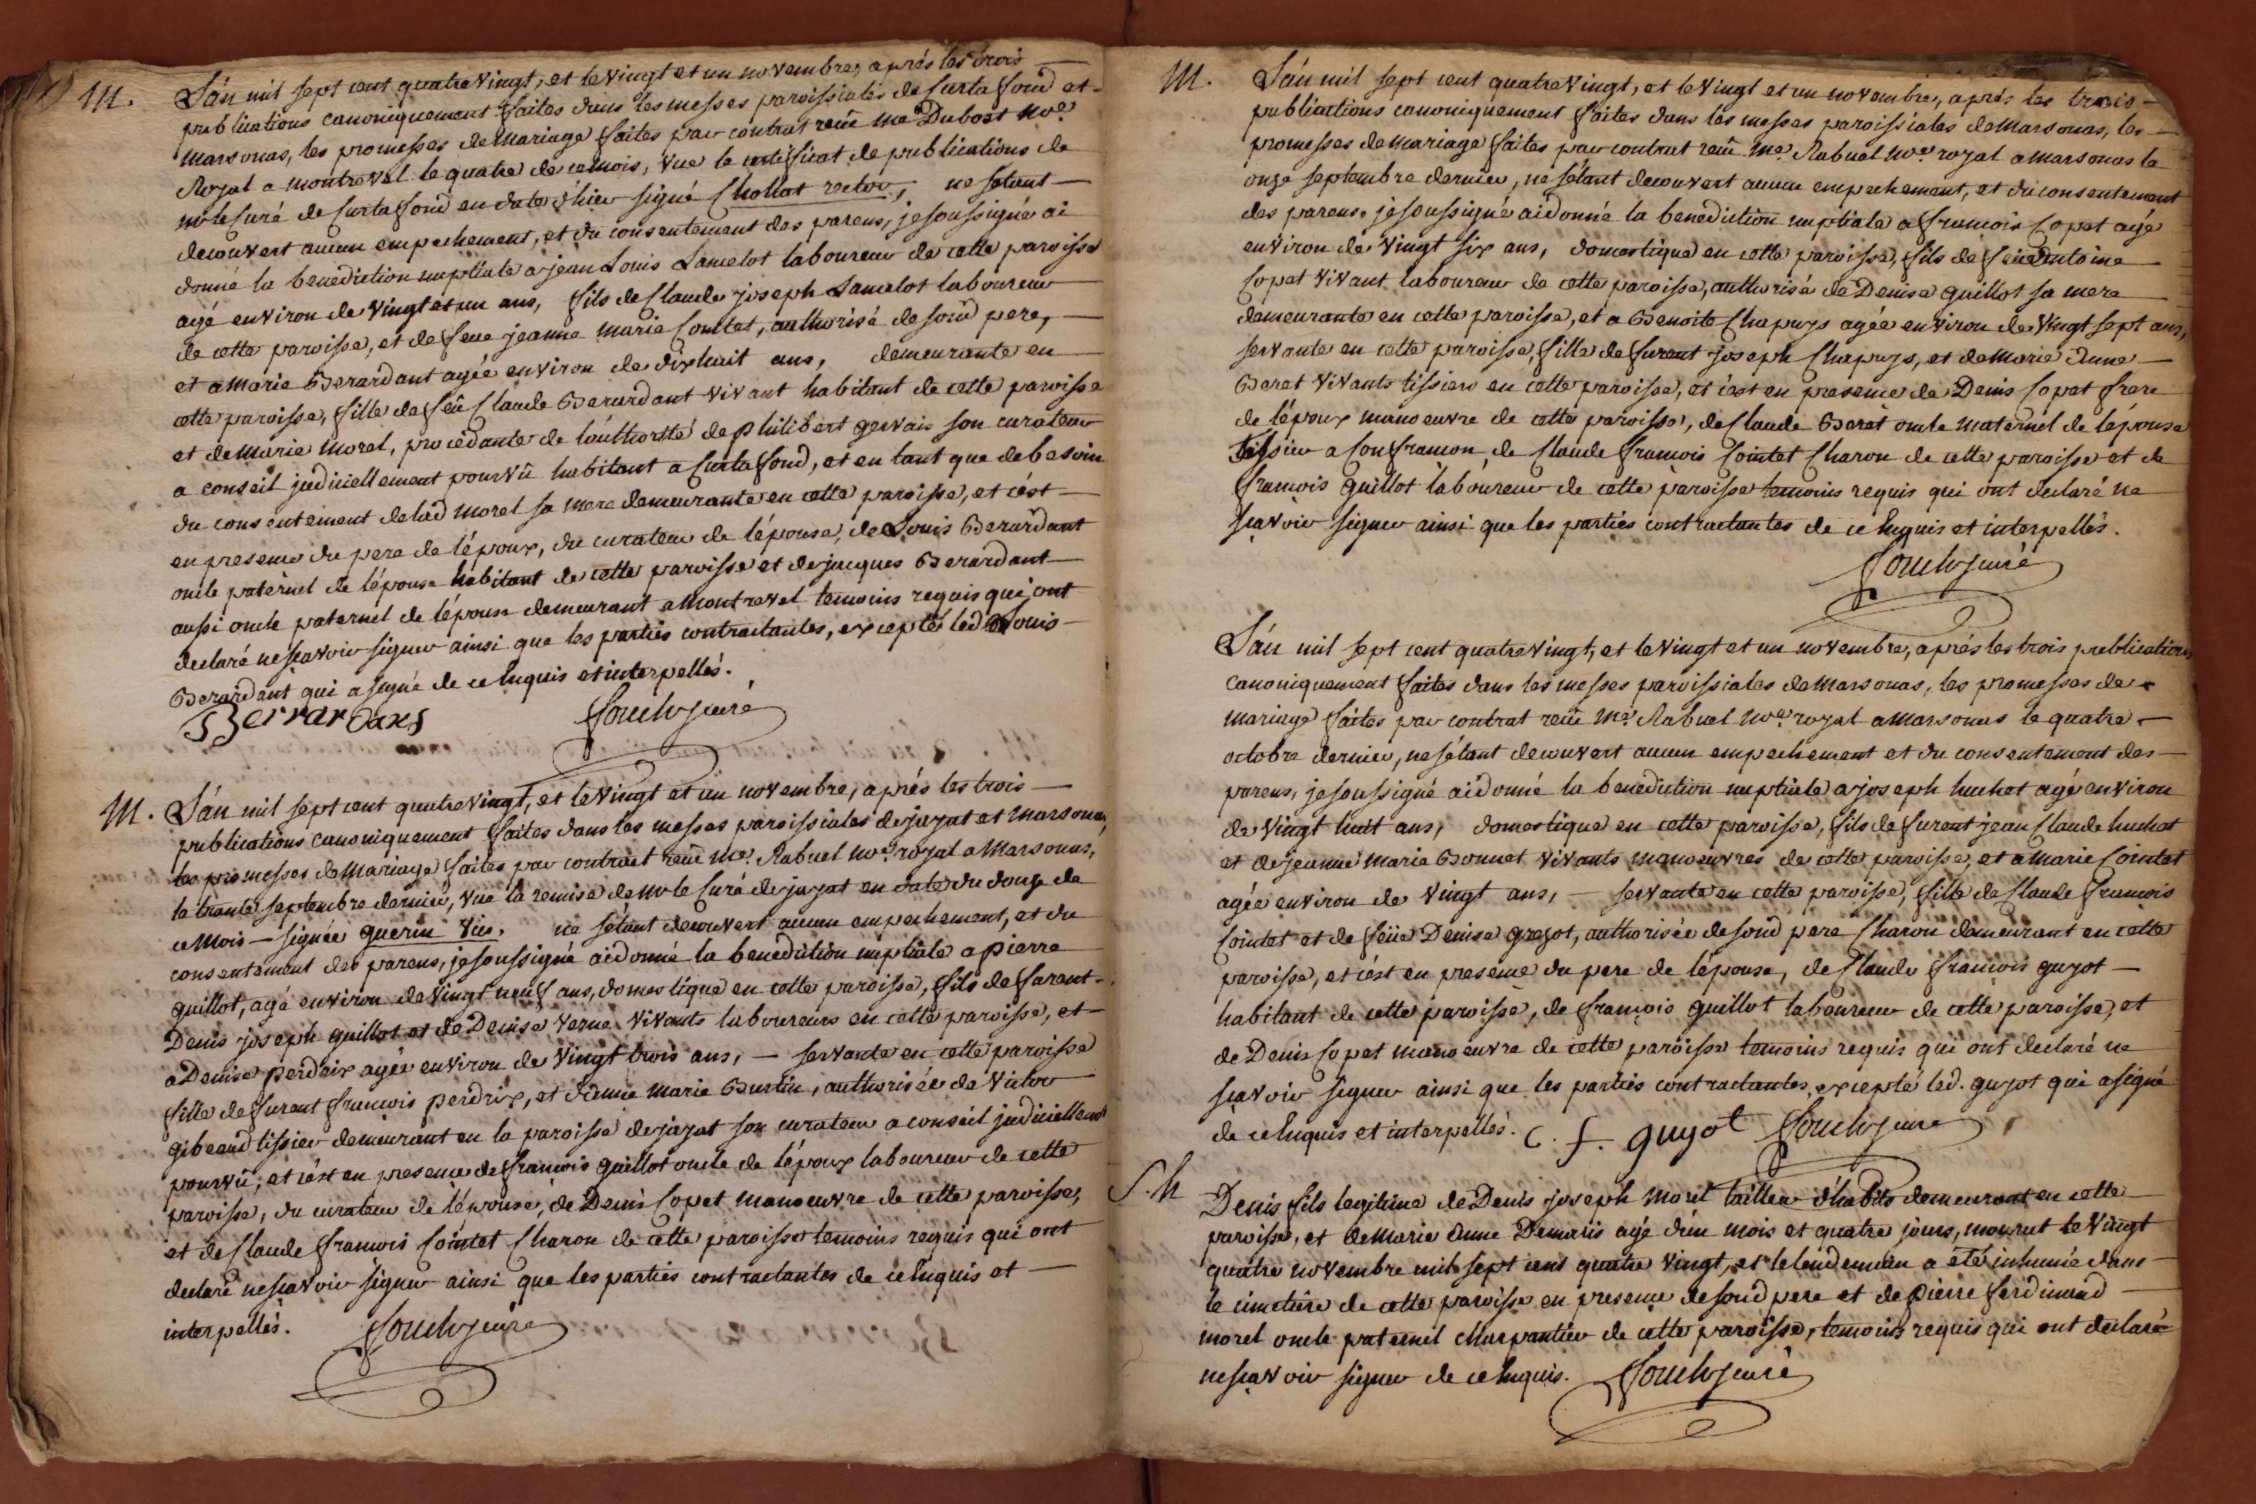 M. L'an mil sept cent quatre vingt, et le vingt et un novembre, aprés les trois
publications canoniquement faites dans les messes paroissiales de Curtafond et
marsonas, les promesses de mariage faites par contrat reçu me Dubost noe.
Royal a montrevel le quatre de ce mois, vue le certificat de publications de
mr le Curé de Curtafond en date d'hier signé Chollat rector, ne s'etant
decouvert aucun empechement, et du consentement des parens, je soussigné ai
donné la benediction nuptiale a jean Louis Lancelot laboureur de cette paroisse
agé environ de vingt et un ans, fils de Claude joseph Lancelot laboureur
de cette paroisse, et de feue jeanne marie Cointet, authorisé de sond pere,
et a marie Berardant agée environ de dixhuit ans, demeurante en
cette paroisse, fille de feû Claude Berardant vivant habitant de cette paroisse
et de marie morel, procedante de l'authorité de philibert gervais son curateur
a conseil judiciellement pourvû habitant a Curtafond, et en tant que de besoin
du consentement de lad morel sa mere demeurante en cette paroisse, et c'est
en presence du pere de l'époux, du curateur de l'épouse, de Louis Berardant
oncle paternel de l'épouse habitant de cette paroisse et de jacques Berardant
aussi oncle paternel de l'épouse demeurant a montrevel temoins requis qui ont
declaré ne sçavoir signer ainsi que les parties contractantes, excepté led Louis
Berardant qui a signé de ce enquis et interpellés.
Berrardans
M. L'an mil sept cent quatre vingt, et le vingt et un novembre, aprés les trois
publications canoniquement faites dans les messes paroissiales de jayat et marsonas,
les promesses de mariage faites par contrat reçu me. Rabuel noe. royal a marsonas,
le trente septembre dernier, vue la remise de mr le Curé de jayat en date du douze de
ce mois — signée guerin vic. ne s'etant decouvert aucun empechement, et du
consentement des parens, je soussigné ai donné la benediction nuptiale a pierre
guillot, agé environ de vingt neuf ans, domestique en cette paroisse, fils de furent
Denis joseph guillot et de Denise verne vivants laboureurs en cette paroisse, et
a Denise perdrix agée environ de vingt trois ans, — servante en cette paroisse
fille de furent francois perdrix, et d'anne marie Burtin, authorisée de victor
gibeaud tissier demeurant en la paroisse de jayat son curateur a conseil judiciellement
pourvû; et c'est en presence de francois guillot oncle de l'époux laboureur de cette
paroisse, du curateur de l'épouse, de Denis Copet manoeuvre de cette paroisse,
et de Claude francois Cointet Charon de cette paroisse temoins requis qui ont
declaré ne sçavoir signer ainsi que les parties contractantes de ce enquis et
interpellés.
M. L'an mil sept cent quatre vingt, et le vingt et un novembre, aprés les trois
publications canoniquement faites dans les messes paroissiales de marsonas, les
promesses de mariage faites par contrat reçu me. Rabuel noe. royal a marsonas le
onze septembre dernier, ne s'étant decouvert aucun empechement, et du consentement
des parens, je soussigné ai donné la benediction nuptiale a francois Copet agé
environ de vingt six ans, domestique en cette paroisse, fils de feu antoine
Copet vivant laboureur de cette paroisse, authorisé de Denise guillot sa mere
demeurante en cette paroisse, et a Benoite Chapuys agée environ de vingt sept ans,
servante en cette paroisse, fille de furent joseph Chapuys, et de marie anne
Beret vivants tissiers en cette paroisse, et c'est en presence de Denis Copet frere
de l'époux manoeuvre de cette paroisse, de Claude Beret oncle maternel de l'épouse
tissier a Confrancon, de Claude francois Cointet Charon de cette paroisse et de
francois guillot laboureur de cette paroisse temoins requis qui ont declaré ne
sçavoir signer ainsi que les parties contractantes de ce enquis et interpellés.
L'an mil sept cent quatre vingt, et le vingt et un novembre, aprés les trois publications
canoniquement faites dans les messes paroissiales de marsonas, les promesses de
mariage faites par contrat reçu me. Rabuel noe. royal a marsonas le quatre
octobre dernier, ne s'étant decouvert aucun empechement et du consentement des
parens, je soussigné ai donné la benediction nuptiale a joseph huchet agé environ
de vingt huit ans, domestique en cette paroisse, fils de furent jean Claude huchet
et de jeanne marie Bonnet vivants manoeuvres de cette paroisse, et a marie Cointet
agée environ de vingt ans, — servante en cette paroisse, fille de Claude francois
Cointet et de feüe Denise grezot, authorisée de sond pere Charon demeurant en cette
paroisse, et c'est en presence du pere de l'épouse, de Claude francois guyot
habitant de cette paroisse, de francois guillot laboureur de cette paroisse, et
de Denis Copet manoeuvre de cette paroisse temoins requis qui ont declaré ne
sçavoir signer ainsi que les parties contractantes, excepté led. guyot qui a signé
de ce enquis et interpellés. C. f. guyot
S. M Denis fils legitime de Denis joseph morel tailleur d'habits demeurant en cette
paroisse, et de marie anne agé d'un mois et quatre jours, mourut le vingt
quatre novembre mil sept cent quatre vingt, et le lendemain a été inhumé dans
le cimetiére de cette paroisse en presence de sond pere et de pierre ferdinand
morel oncle paternel charpantier de cette paroisse, temoins requis qui ont declaré
ne sçavoir signer de ce enquis.